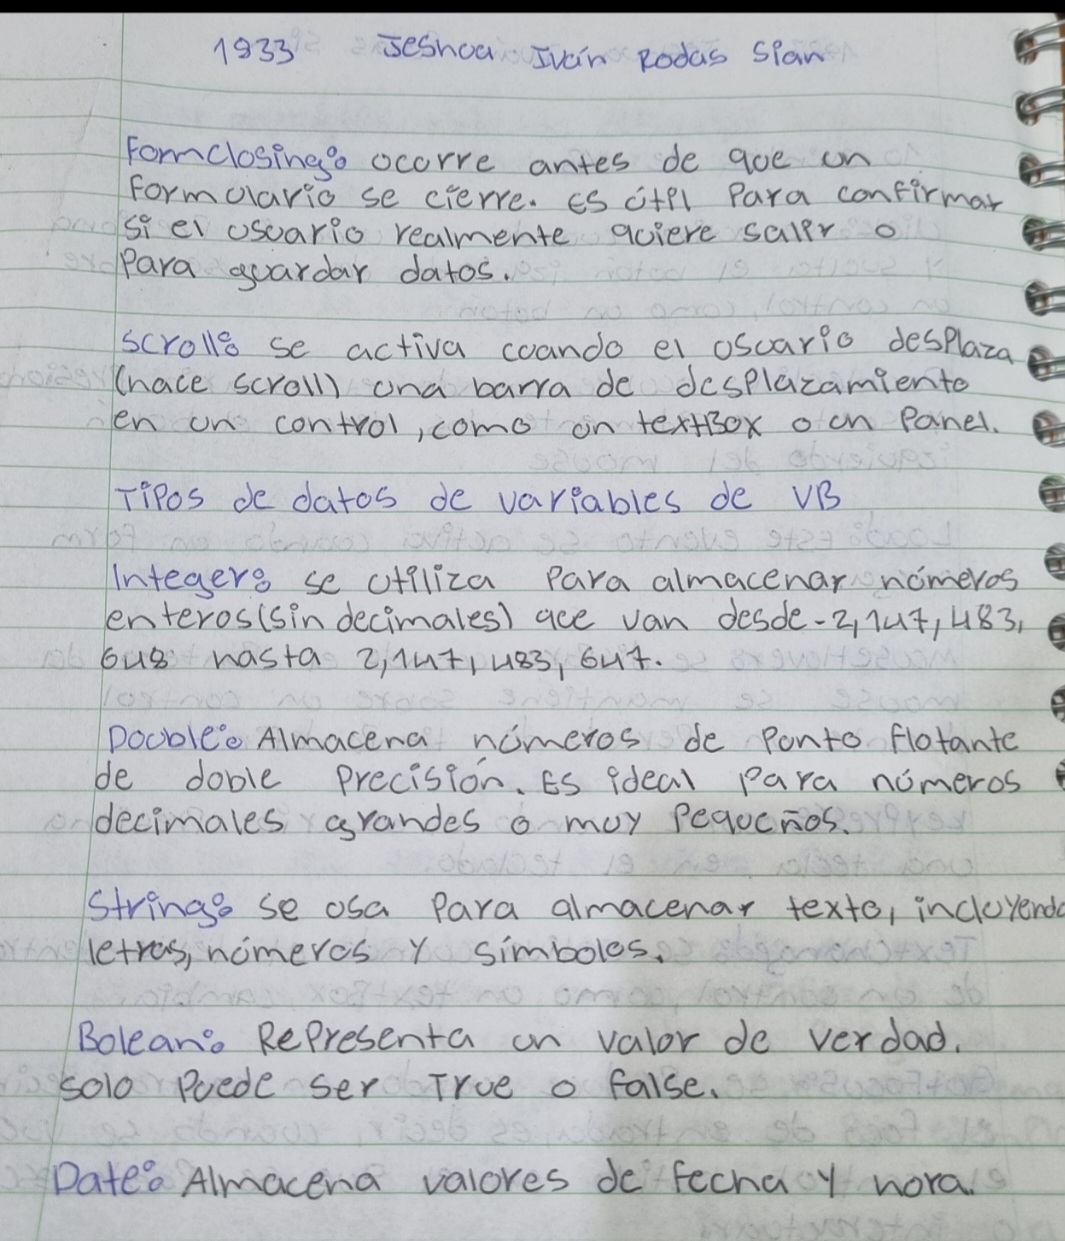 1933 Jeshua Iván Rodas Sian
Formclosing: ocurre antes de que un
formulario se cierre. Es útil Para confirmar
si el usuario realmente quiere salir o
Para guardar datos.
scroll: se activa cuando el usuario desplaza
(hace scroll) una barra de desplazamiento
en un control, como un textBox o un Panel.
Tipos de datos de variables de VB
Integer: se utiliza Para almacenar números
enteros (sin decimales) que van desde -2,147,483,
648 hasta 2,147,483,647.
Double: Almacena números de Punto flotante
de doble Precisión. Es ideal para números
decimales grandes o muy Pequeños.
String: se usa Para almacenar texto, incluyendo
letras, números y símbolos.
Bolean: Representa un valor de verdad.
solo Puede ser True o false.
Date: Almacena valores de fecha y hora.